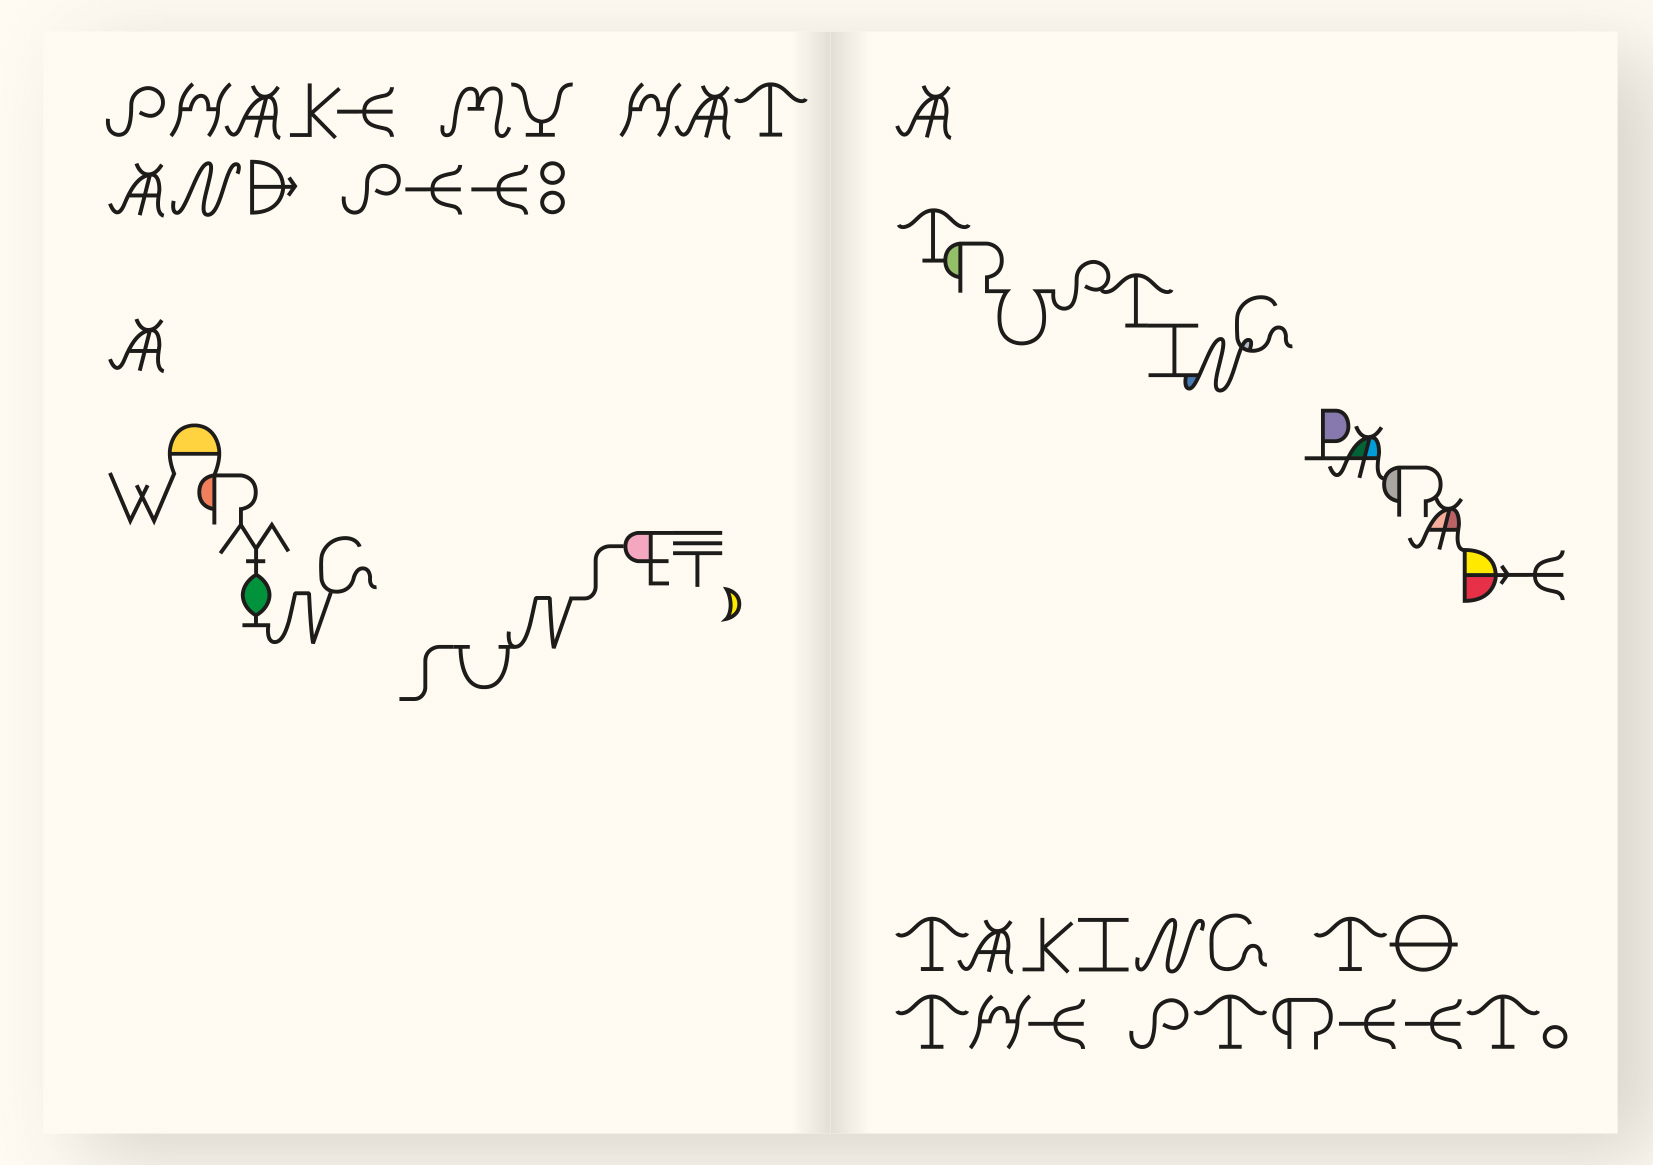 SHAKE MY HAT
AND SEE:
A
WARMING SUNSET,
A
TRUSTING PARADE
TAKING TO
THE STREET.